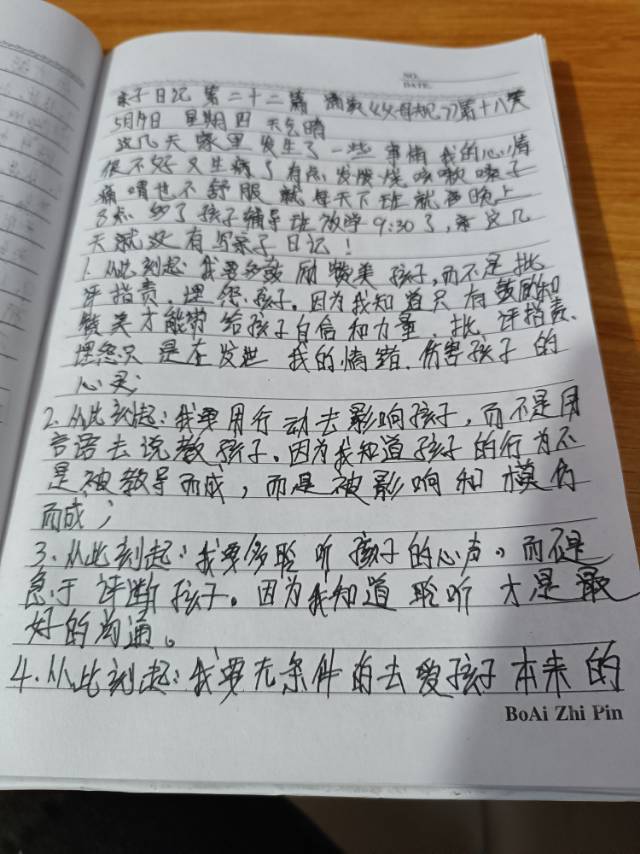 NO.
DATE.
亲子日记 第二十二篇 诵读《父母规》第十八天
5月9日 星期四 天气晴
这几天家里发生了一些事情我的心情
很不好又生病了有点发烧咳嗽嗓子
痛胃也不舒服就每天下班就晚上
了孩子辅导班放学9:30了,这几
天就没有写亲子日记!
1.从此刻起:我要多鼓励赞美孩子,而不是批
评指责、埋怨孩子。因为我知道只有鼓励和
赞美才能带给孩子自信和力量.批评指责、
埋怨只是在发泄我的情绪.伤害孩子的
心灵;
2.从此刻起:我要用行动去影响孩子,而不是用
言语去说教孩子.因为我知道孩子的行为不
是被教导而成,而是被影响和模仿
而成;
3.从此刻起:我要多聆听孩子的心声,而不是
急于评断孩子。因为我知道聆听才是最
好的沟通。
4.从此刻起:我要无条件的去爱孩子本来的
BoAi Zhi Pin